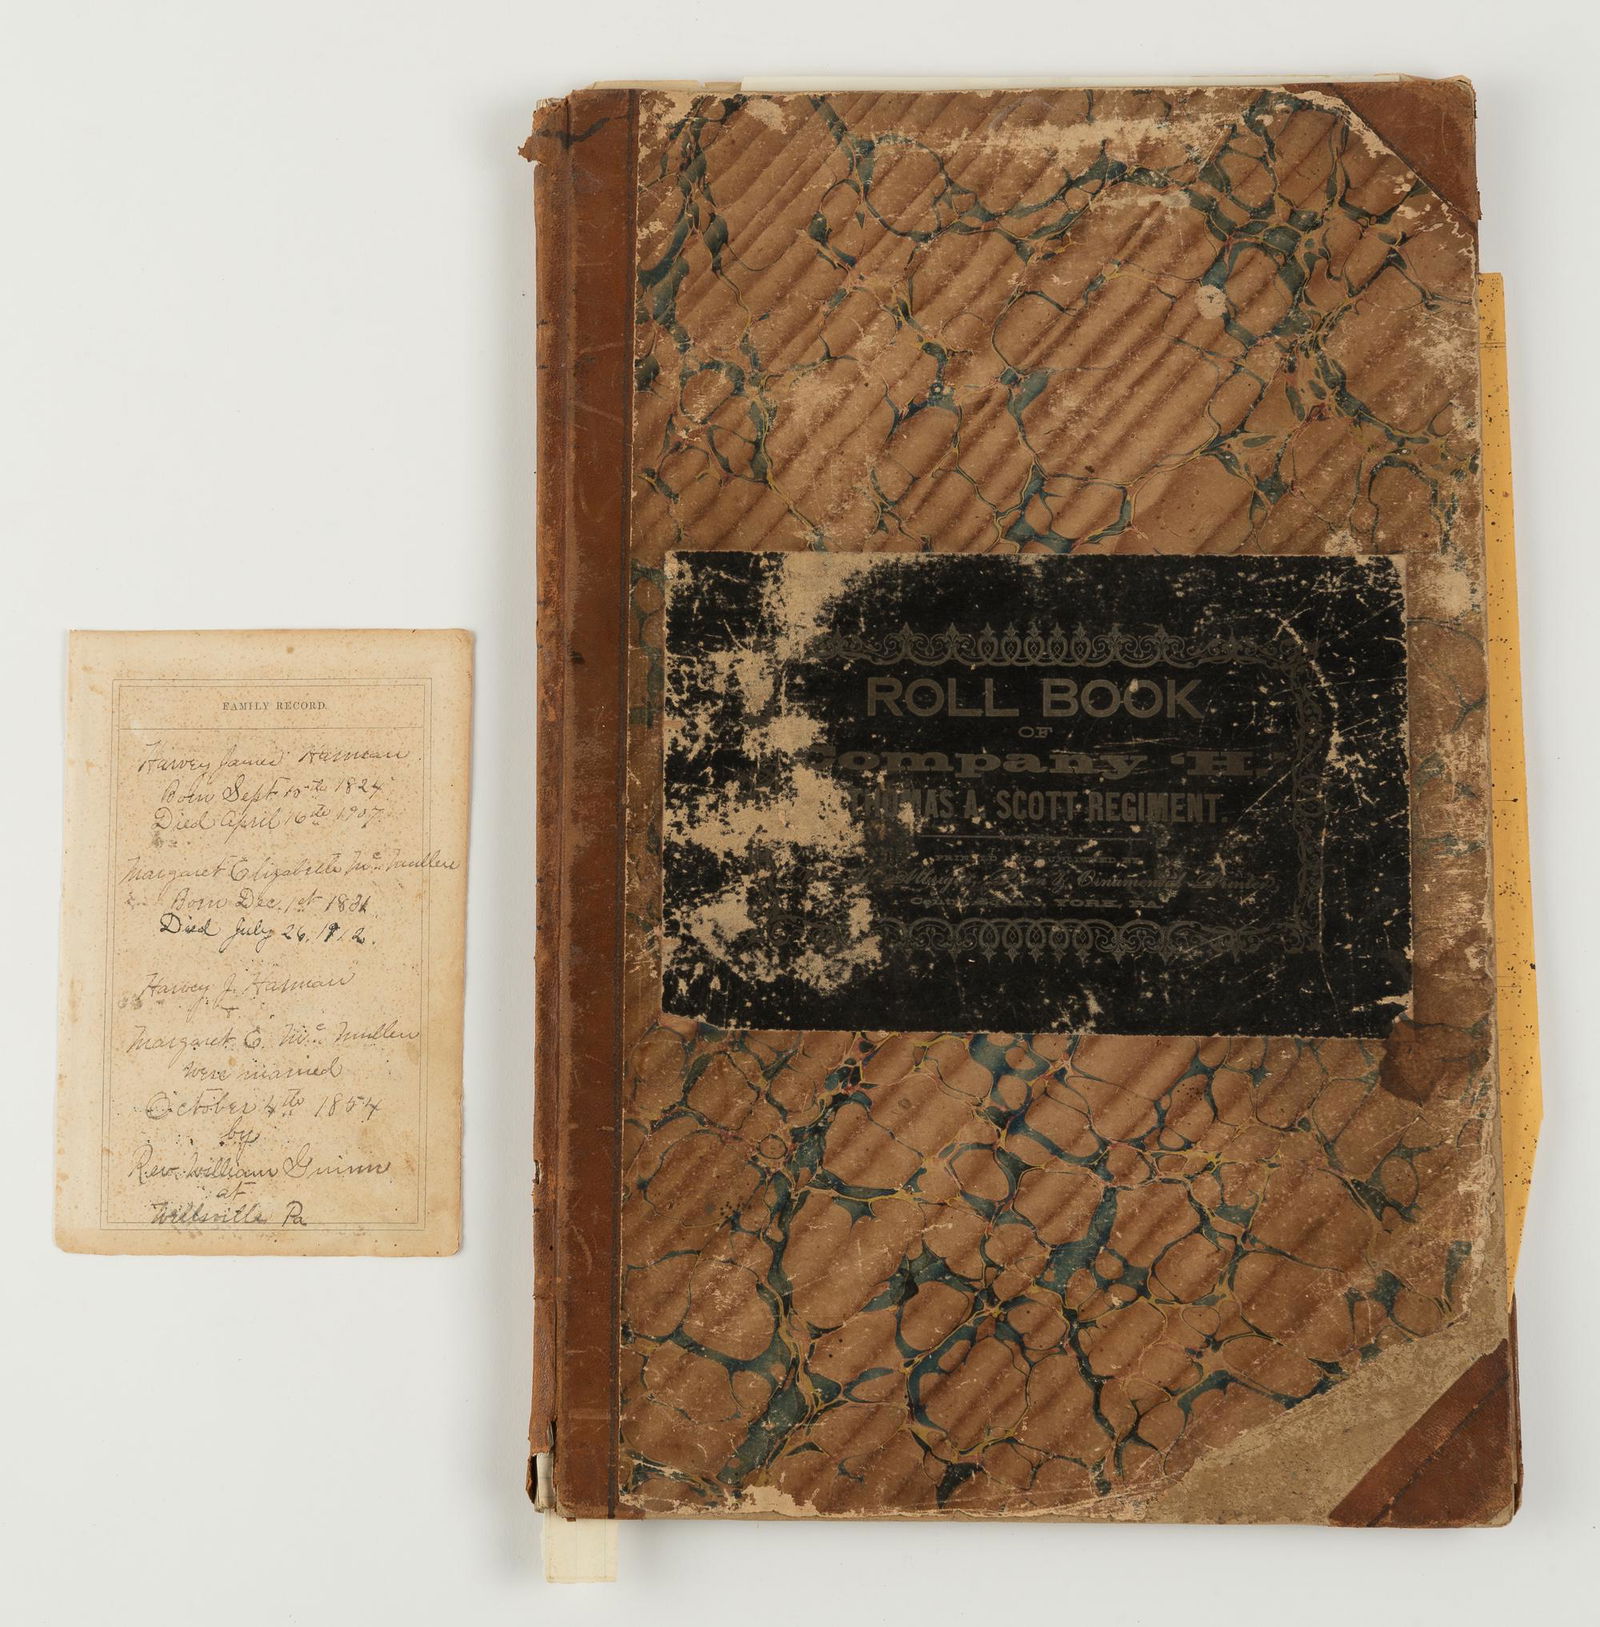 FAMILY RECORD.
Harvey James Harman
Born Sept 10th 1824
Died April 16th 1907
Margaret Elizabeth Mc Mullen
Born Dec. 1st 1831
Died July 26, 1912.
Harvey J. Harman
Margaret E. Mc Mullen
were married
October 4th 1854
by
Rev. William Guinn
at
Wellsville Pa
ROLL BOOK
OF
Company "H,"
THOMAS A. SCOTT REGIMENT.
& Ornamental Printer,
YORK, PA.